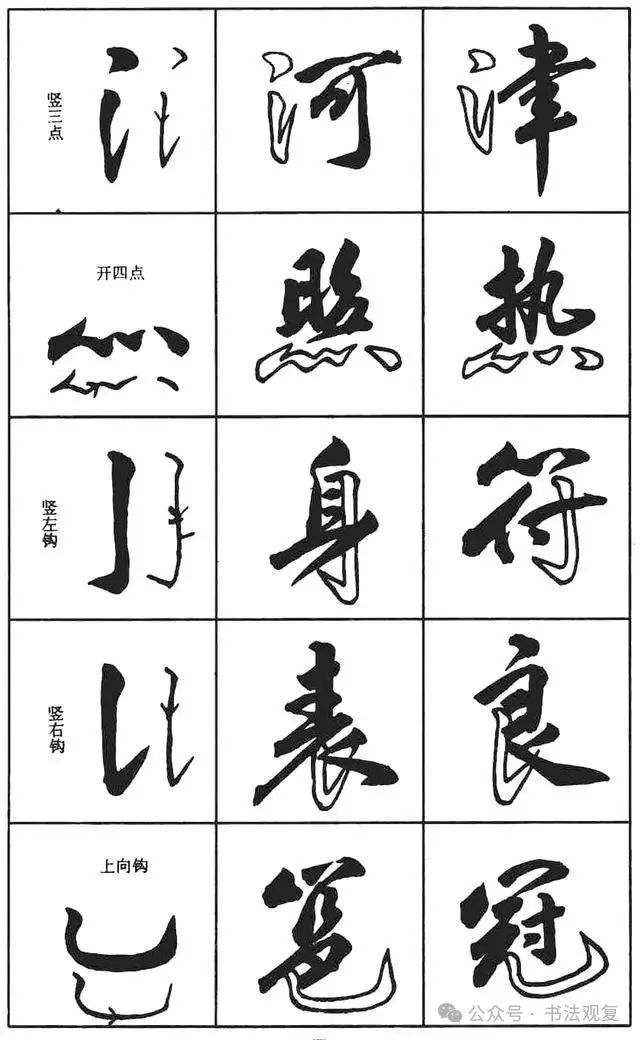 竖三点
河
津
开四点
照
热
竖左钩
身
符
竖右钩
表
良
上向钩
冠
公众号 · 书法观复